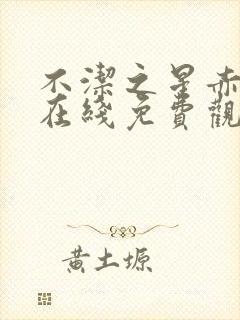 不潔之星赤
在綫免費觀
黃土塬